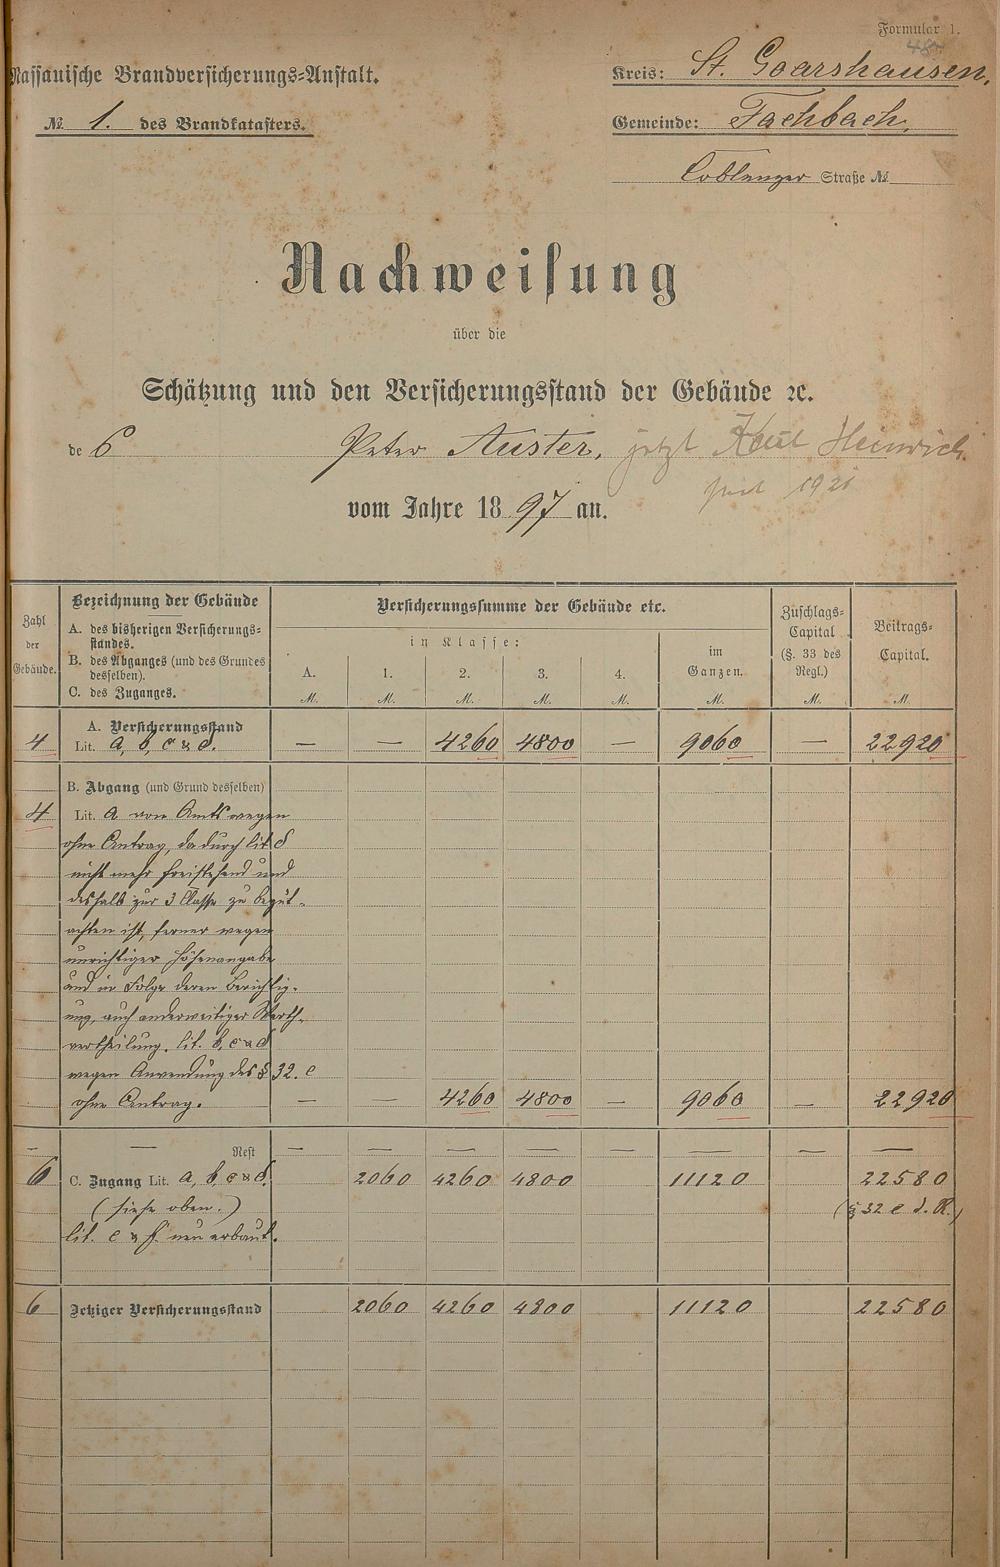 Formular 1.
Nassauische Brandversicherungs-Anstalt.
Kreis: St. Goarshausen.
№ 1. des Brandkatasters.
Gemeinde: Fachbach.
Coblenzer Straße №
Nachweisung
über die
Schätzung und den Versicherungsstand der Gebäude ꝛc.
de s Peter Auster, jetzt Heinrich
seit 1921
vom Jahre 1897 an.
Zahl der Gebäude.
Bezeichnung der Gebäude
A. des bisherigen Versicherungs-
standes.
B. des Abganges (und des Grundes
desselben).
C. des Zuganges.
Versicherungssumme der Gebäude etc.
in Klasse:
A. 1. 2. 3. 4. im Ganzen.
M. M. M. M. M. M.
Zuschlags-Capital (§. 33 des Regl.) M.
Beitrags-Capital. M.
A. Versicherungsstand
4 Lit. a, b, c & d. — — 4260 4800 — 9060 — 22920
B. Abgang (und Grund desselben)
4 Lit. a von Amtswegen
ohne Antrag, da durch lit d
nicht mehr freistehend und
deshalb zur 3 Classe zu begut-
achten ist, ferner wegen
unrichtiger Höhenangabe
und in Folge deren Berichtig-
ung, auch anderweitiger Werth-
vertheilung. lit. b, c & d
wegen Anwendung des § 32. e
ohne Antrag. — — 4260 4800 — 9060 — 22920
— — Rest — — — — — — — —
6 C. Zugang Lit. a, b, c & d. 2060 4260 4800 11120 22580
(siehe oben.) (§ 32 e d. R.)
lit. e & f. neu erbaut.
6 Jetziger Versicherungsstand 2060 4260 4800 11120 22580